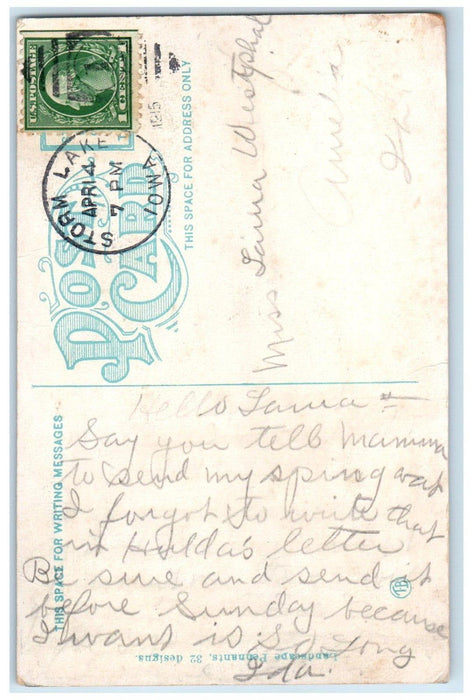 U.S. POSTAGE
1 CENT 1
STORM LAKE
APR 14
7 PM
IOWA
1915
POST CARD
THIS SPACE FOR ADDRESS ONLY
Miss Laura Westphal
Ia
THIS SPACE FOR WRITING MESSAGES
Hello Laura =
Say you tell Mamma
to send my spring coat
I forgot to write that
in Hulda's letter
Be sure and send it
before Sunday because
I want is So Long
Ida.
Landscape Pennants, 32 designs.